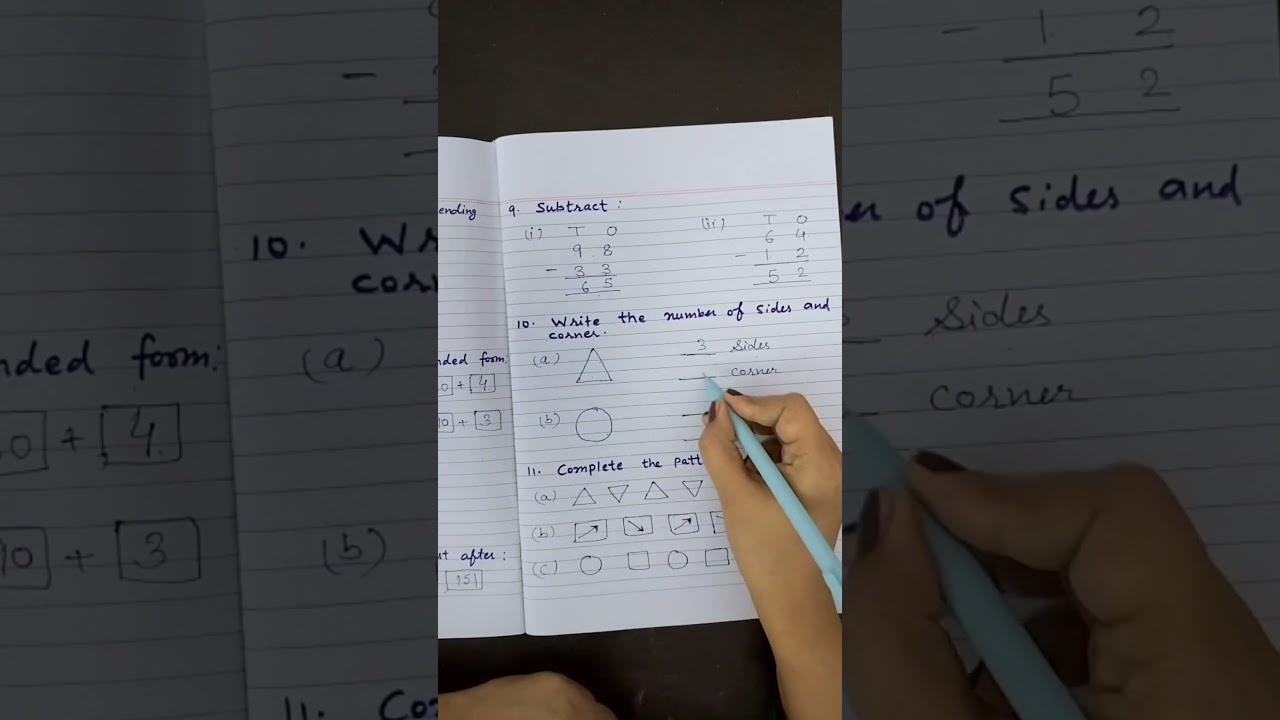 ending
nded form:
0 + 4
10 + 3
t after:
151
9. Subtract:
(i) T O
9 8
- 3 3
6 5
(ii) T O
6 4
- 1 2
5 2
10. Write the number of sides and
corner.
(a) 3 sides
corner
(b)
11. Complete the patt
(a)
(b)
(c)